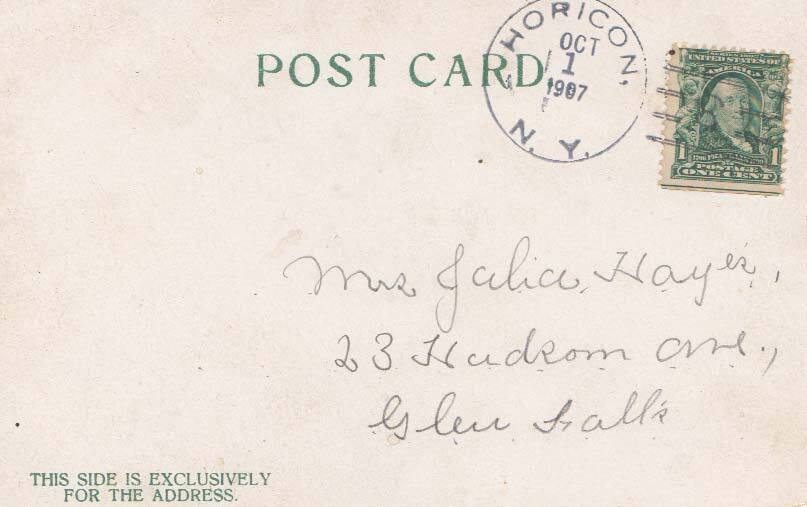 POST CARD
HORICON,
OCT
1
1907
N. Y.
SERIES 1902
UNITED STATES OF
AMERICA
1 1
FRANKLIN
POSTAGE
ONE CENT
Mrs Julia Hayes,
23 Hudson Ave.,
Glen Falls
THIS SIDE IS EXCLUSIVELY
FOR THE ADDRESS.